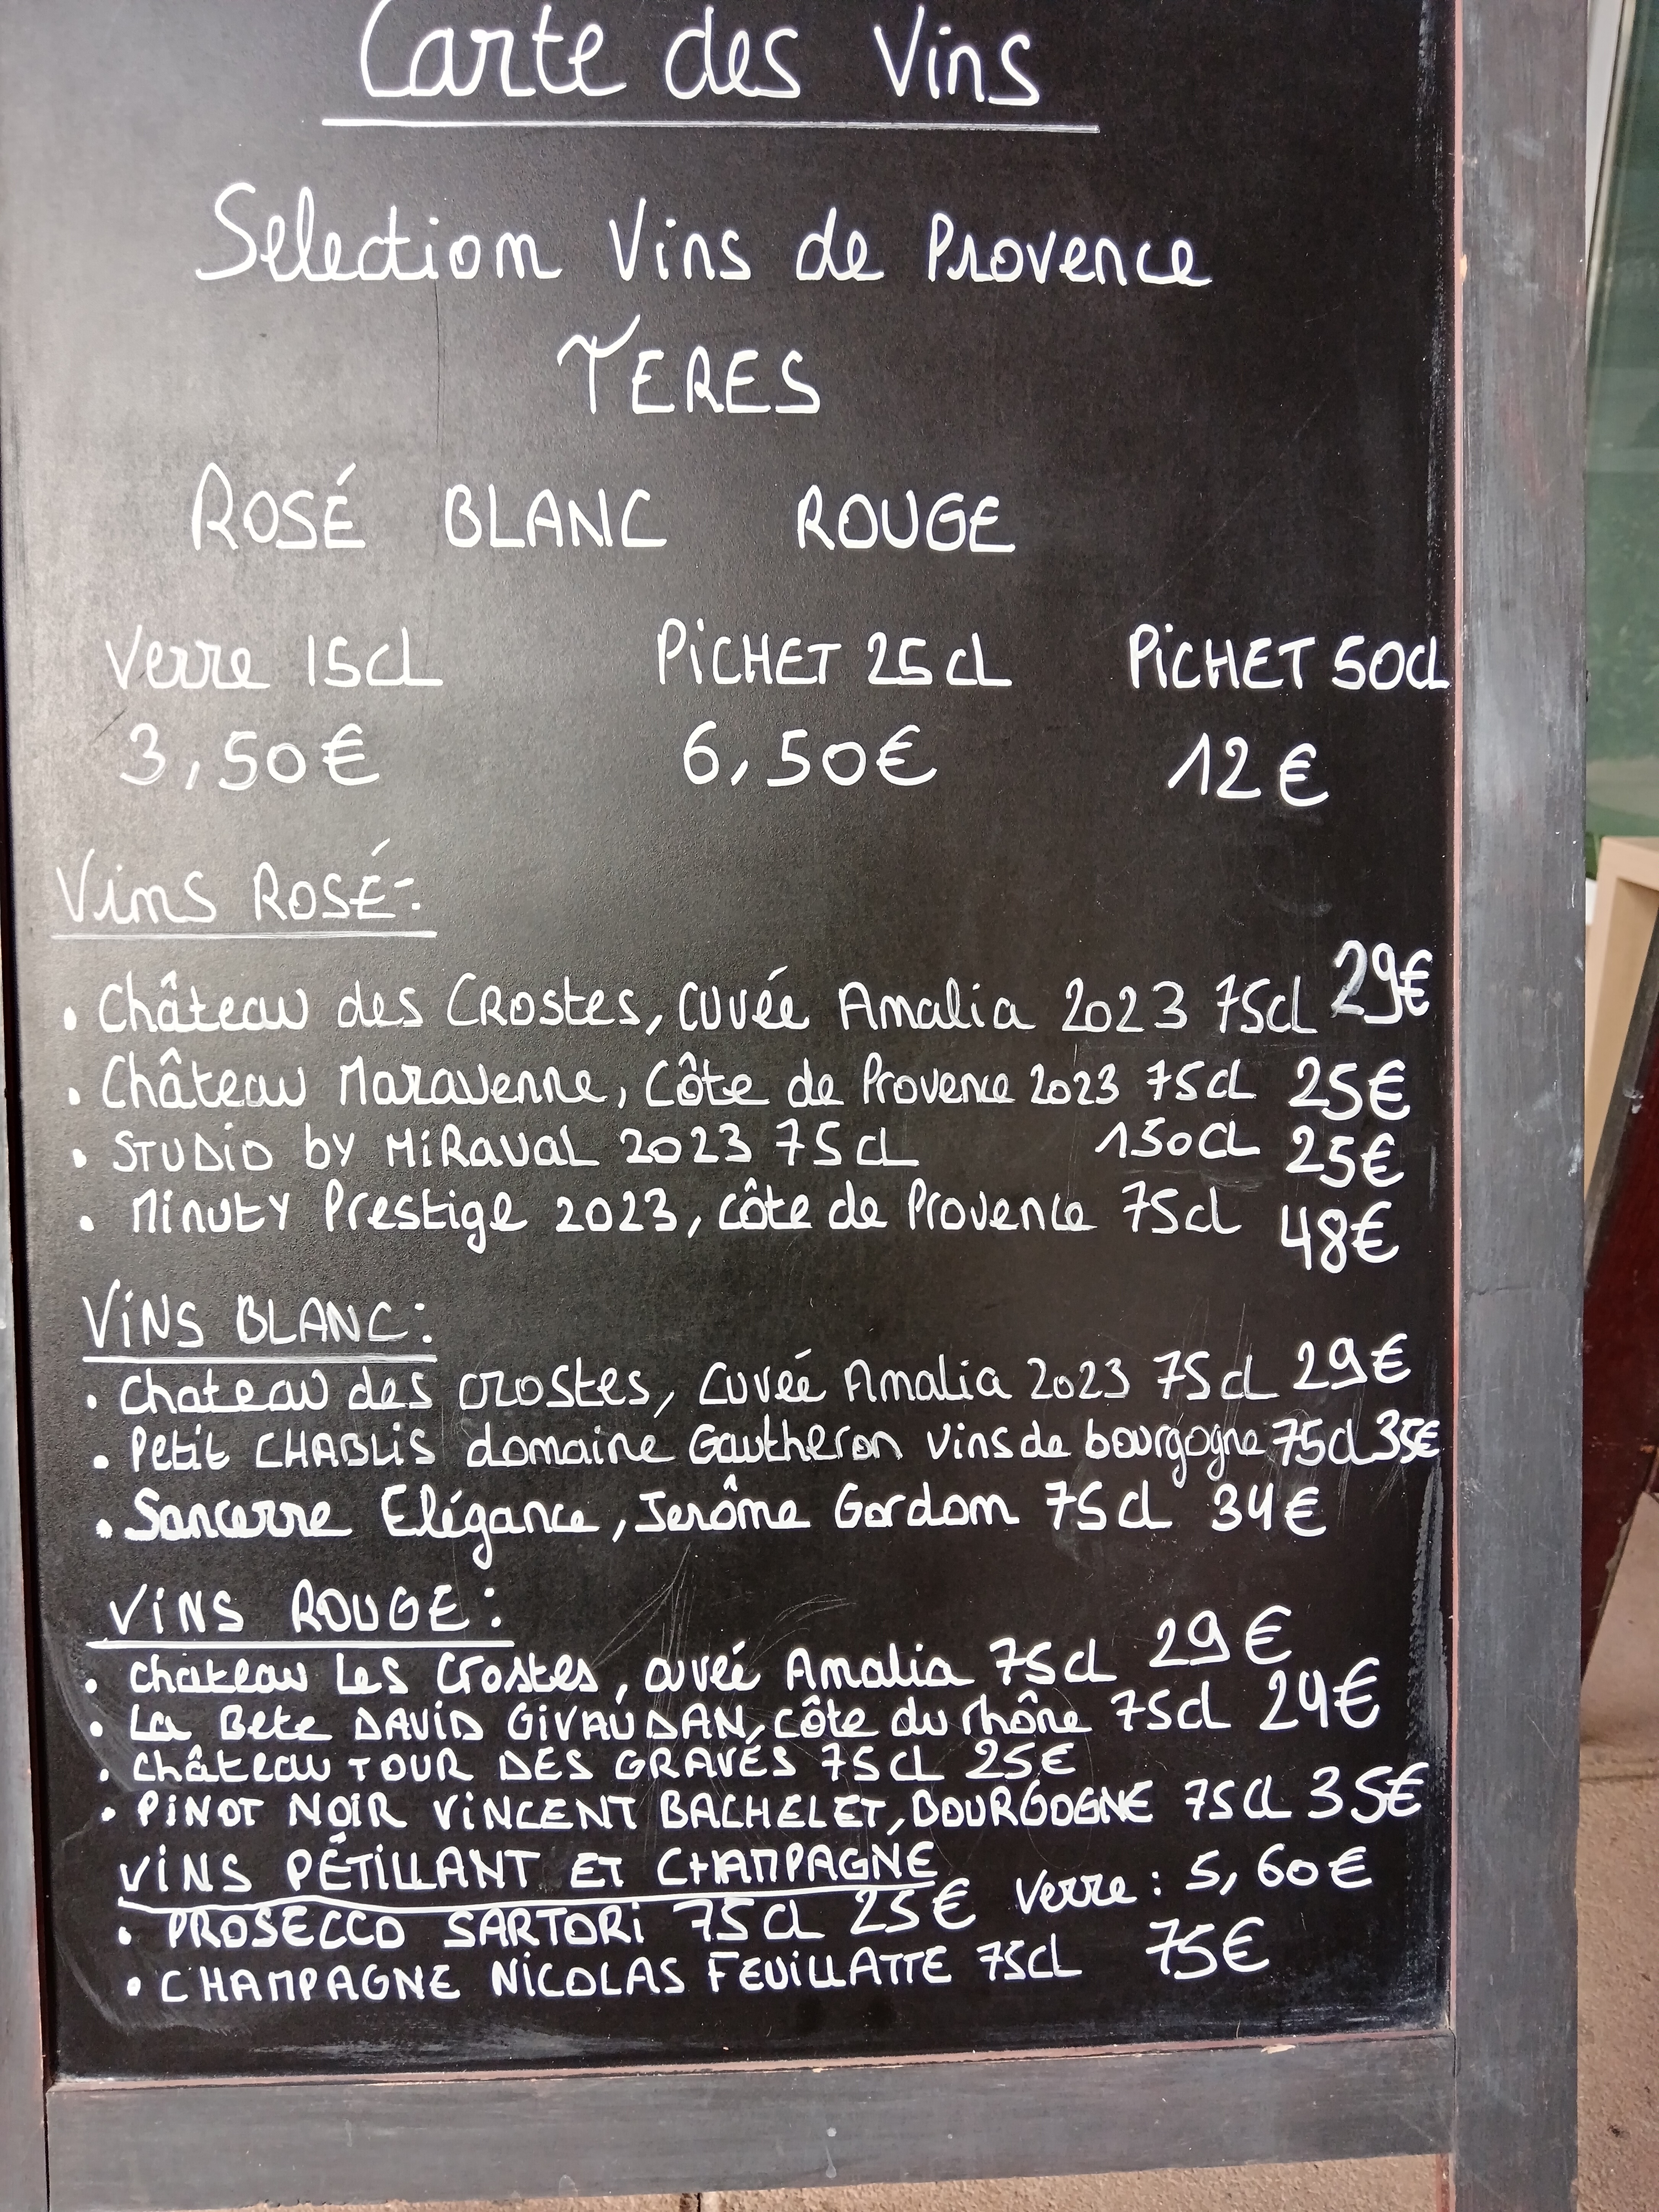 Carte des Vins
Selection Vins de Provence
TERES
ROSÉ BLANC ROUGE
Verre 15cl PiCHET 25cl PiCHET 50cl
3,50€ 6,50€ 12€
Vins ROSÉ:
• Château des CRostes, cuvée Amalia 2023 75cl 29€
• Château Maravenne, Côte de Provence 2023 75cl 25€
• STUDiO by MiRavaL 2023 75cL 150cL 25€
• Minuty Prestige 2023, côte de Provence 75cl 48€
ViNS BLANC:
• Chateau des crostes, Cuvée Amalia 2023 75cl 29€
• Petit CHABLiS domaine Gautheron vins de bourgogne 75cl 35€
• Sancerre Elégance, Jerôme Gordom 75cl 34€
ViNS ROUGE:
• chateau Les Crostes, cuvée Amalia 75cl 29€
• La Bete DAViD GiVAUDAN, côte du rhône 75cl 24€
• château TOUR DES GRAVÉS 75cL 25€
• PiNOT NOiR ViNCENT BACHELET, BOURGOGNE 75cL 35€
ViNS PÉTiLLANT ET CHAMPAGNE
• PROSECCO SARTORi 75cL 25€ Verre: 5,60€
• CHAMPAGNE NiCOLAS FEUiLLATTE 75cL 75€